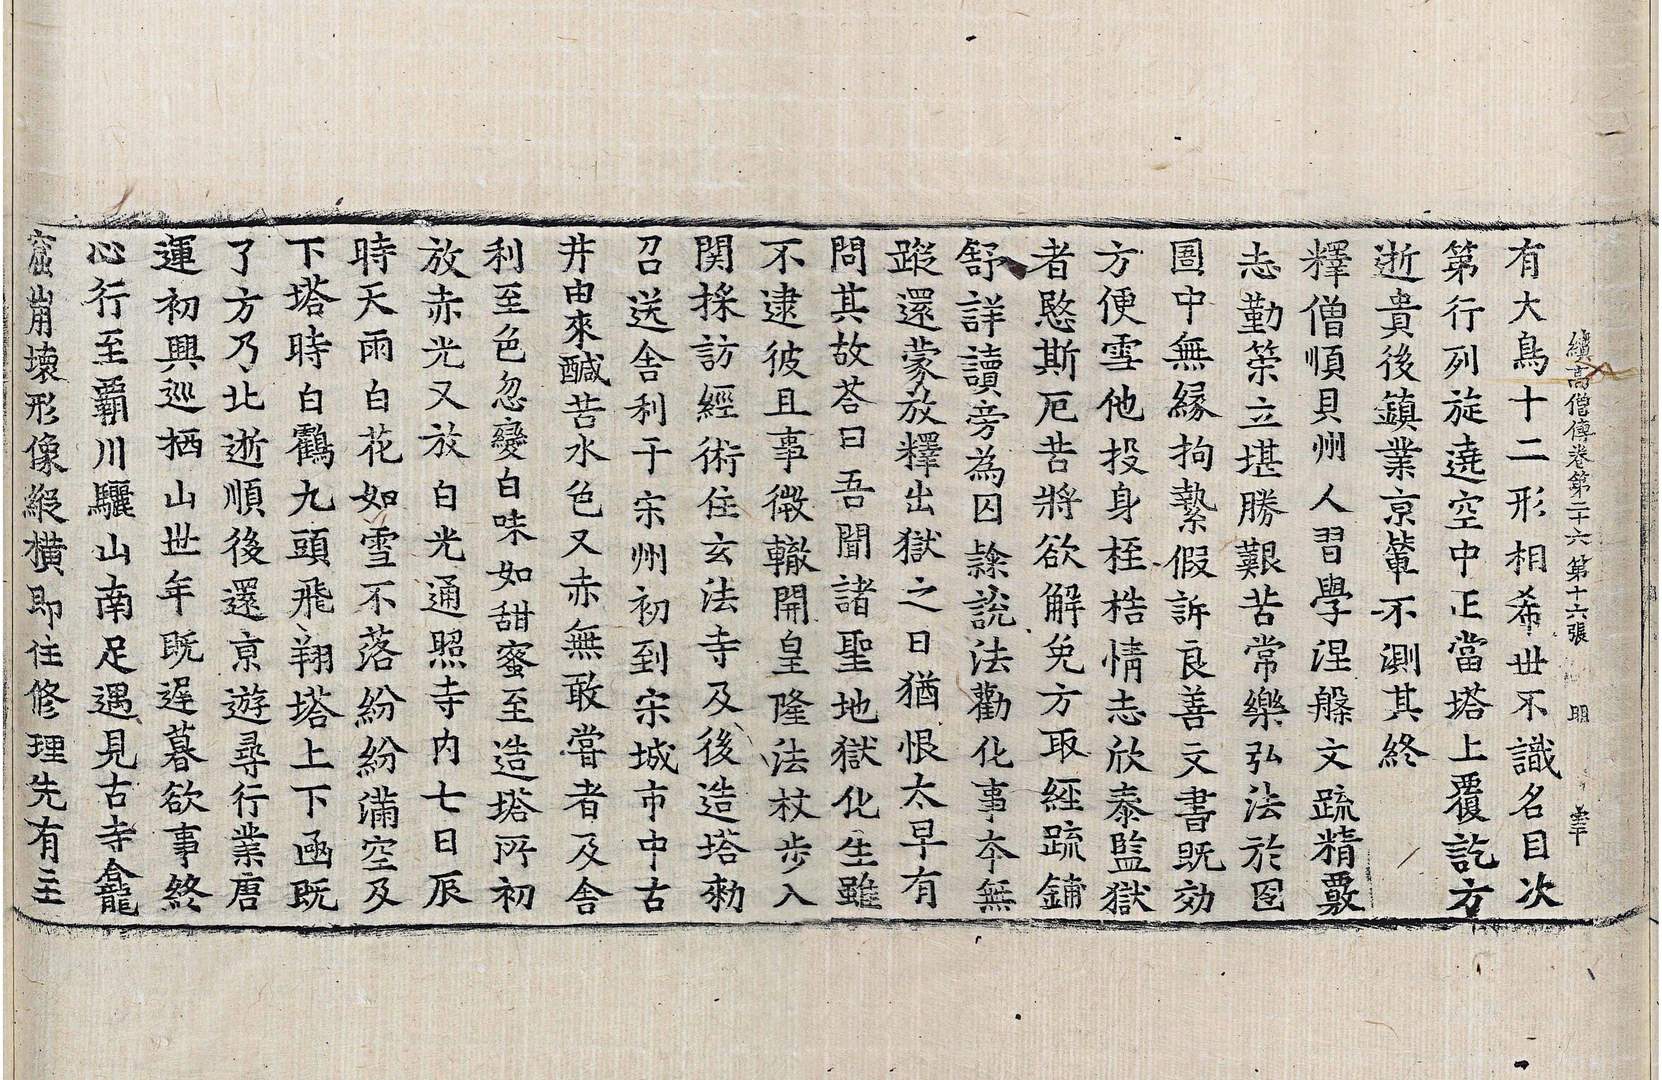 續高僧傳卷第二十六 第十六張 明
有大鳥十二形相希世不識名目次
第行列旋遶空中正當塔上覆訖方
逝貴後鎮業京輦不測其終
釋僧順貝州人習學涅槃文疏精覈
志勤策立堪勝艱苦常樂弘法於囹
圄中無緣拘縶假訴良善文書既効
方便雪他投身桎梏情志欣泰監獄
者愍斯厄苦將欲解免方取經疏鋪
舒詳讀旁為囚隸說法勸化事夲無
蹤還蒙放釋出獄之日猶恨太早有
問其故荅曰吾聞諸聖地獄化生雖
不逮彼且事微轍開皇隆法杖步入
関採訪經術住玄法寺及後造塔勑
召送舍利于宋州初到宋城市中古
井由來鹹苦水色又赤無敢嘗者及舍
利至色忽變白味如甜蜜至造塔所初
放赤光又放白光通照寺內七日辰
時天雨白花如雪不落紛紛滿空及
下塔時白鸖九頭飛翔塔上下函既
了方乃北逝順後還京遊尋行業唐
運初興巡栖山世年既遲暮欲事終
心行至覇川驪山南足遇見古寺龕
窟崩壞形像縱橫即住修理先有主